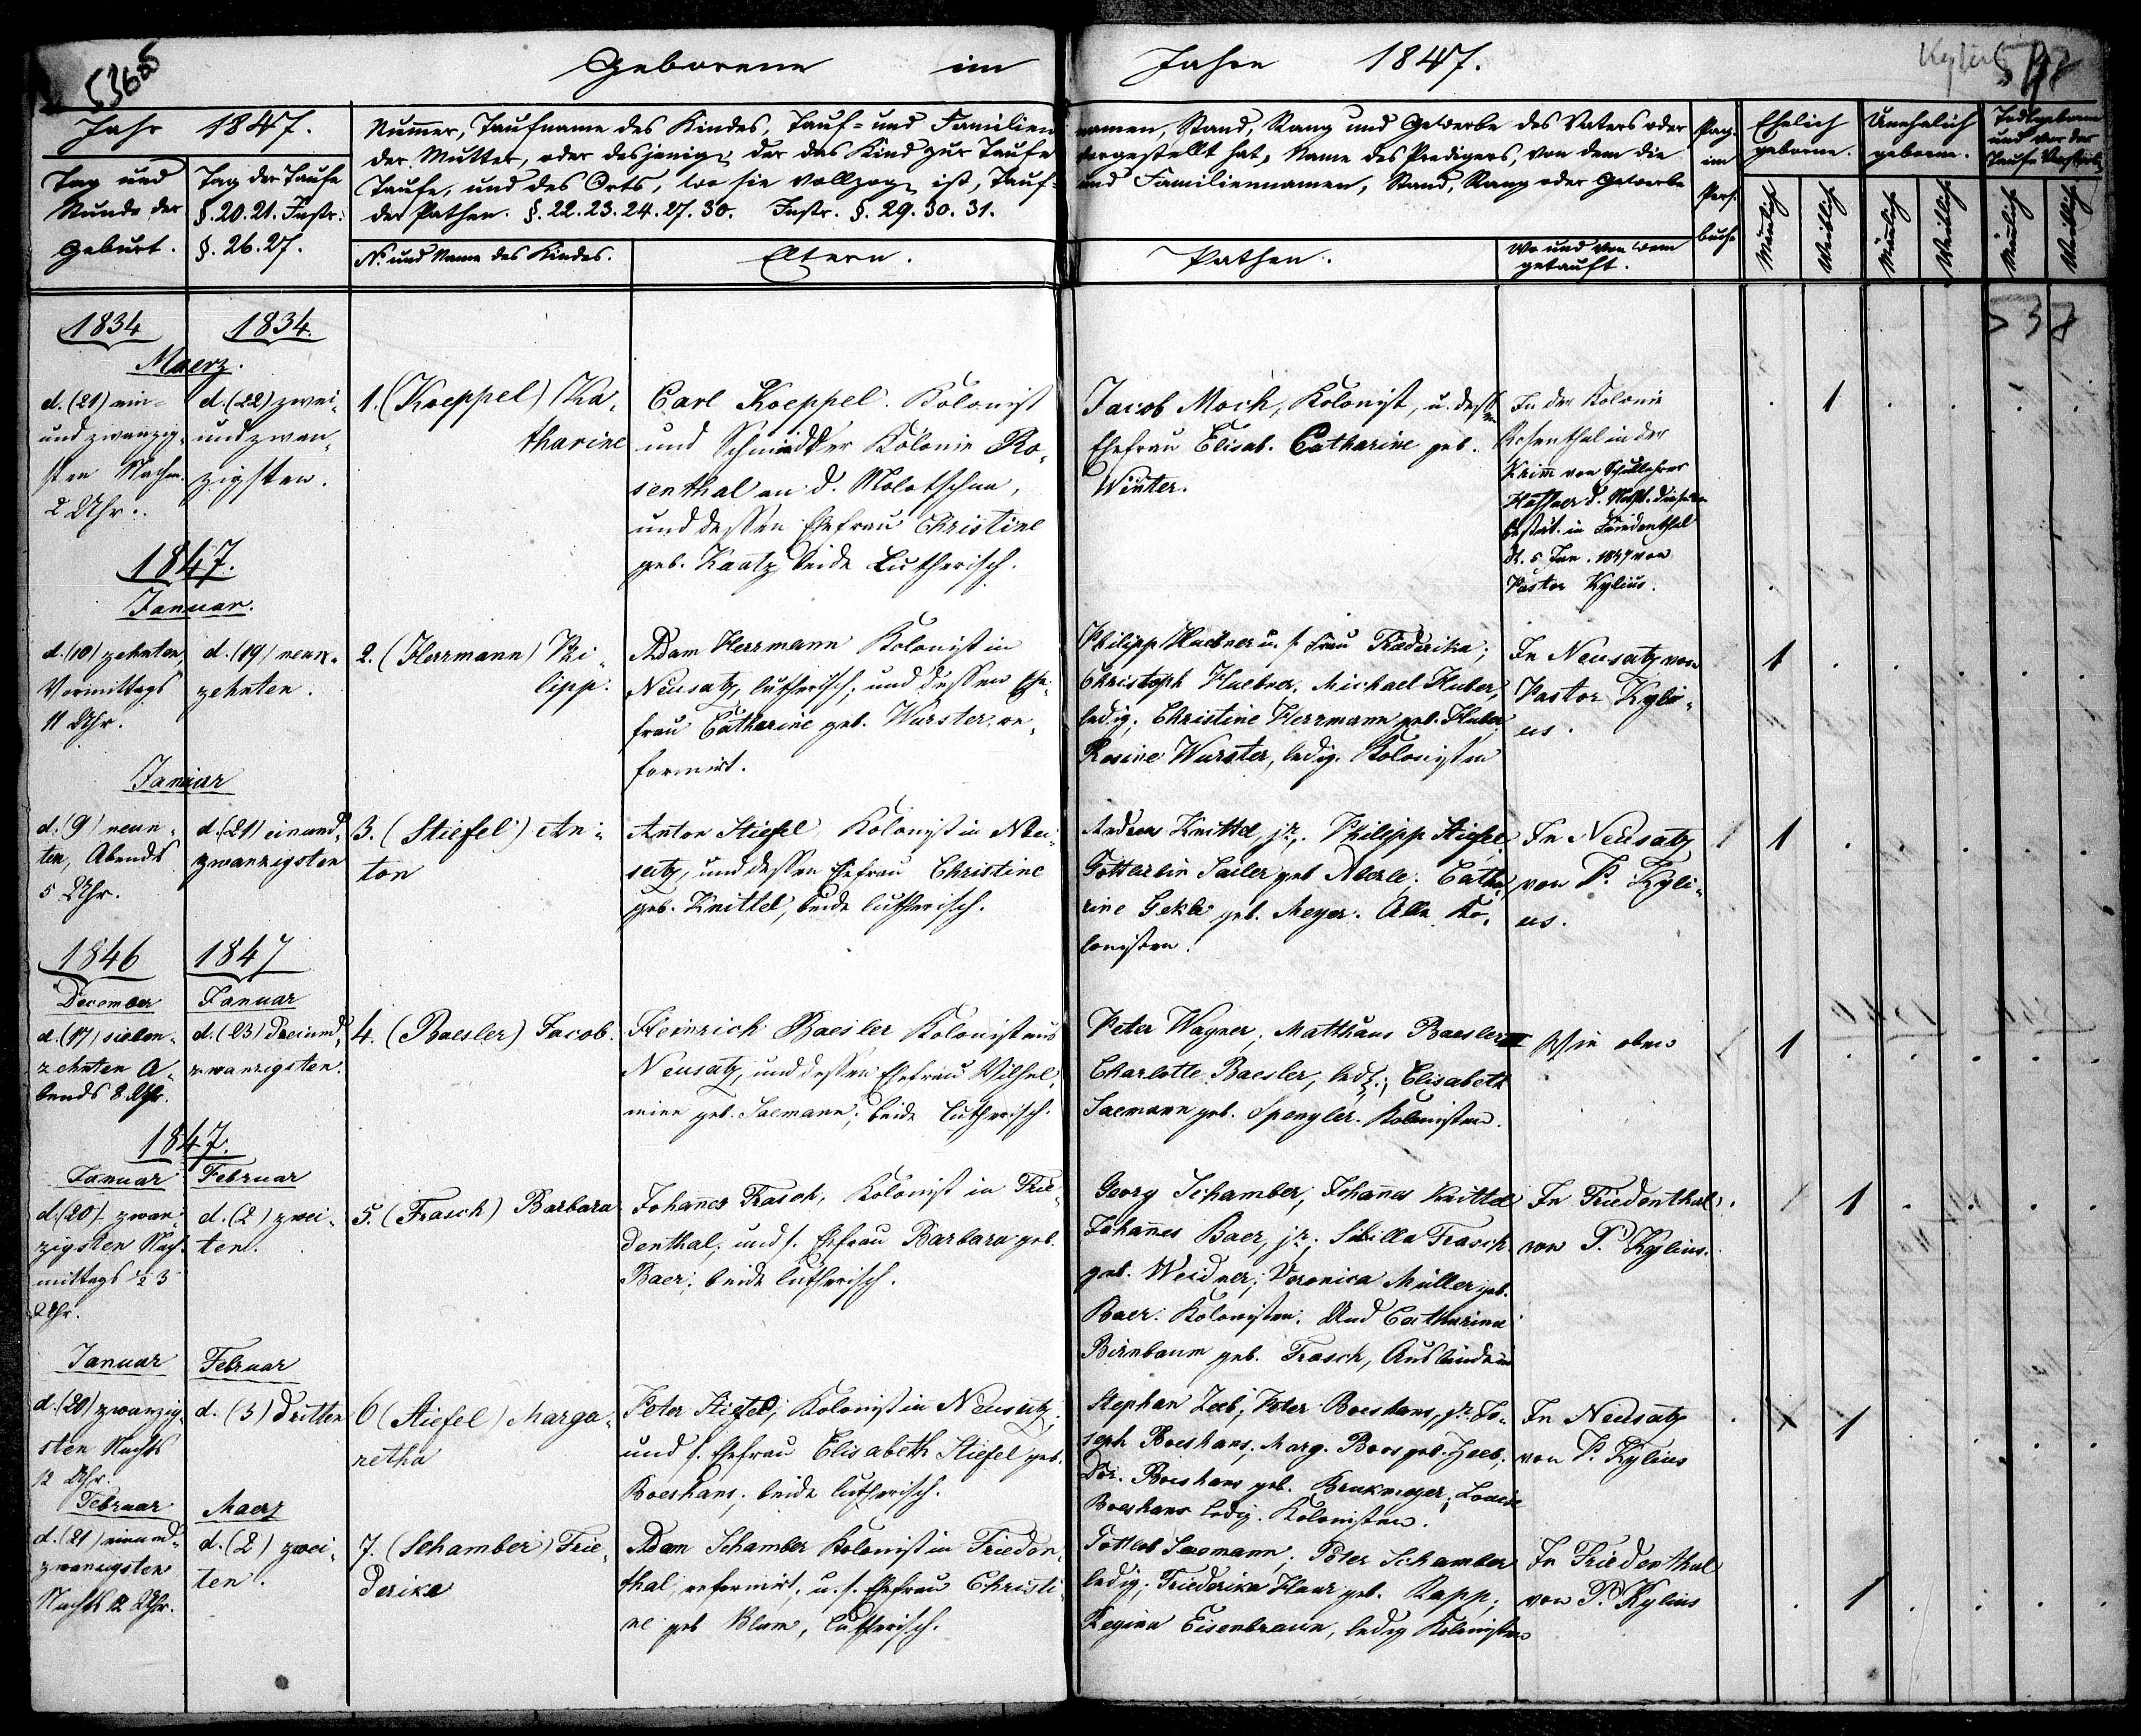 Geborene im Jahre 1847.
Jahr 1847.
Tag und
Stunde der
Geburt.
Tag der Taufe
§. 20. 21. Instr:
§. 26. 27.
Nummer, Taufname des Kindes, Tauf- und Familien
namen, Stand, Rang und Gewerbe des Vaters oder
der Mutter, oder desjenigen der das Kind zur Taufe
vorgestellt hat, Name des Predigers, von dem die
Taufe, und des Orts, wo sie vollzogen ist, Tauf-
und Familiennamen, Stand, Rang oder Gewerbe
der Pathen. §. 22. 23. 24. 27. 30. Instr. §. 29. 30. 31.
No. und Name des Kindes.
Eltern.
Pathen.
Wo und von wem
getauft.
Pag.
im
Pers.
buche
Ehelich
geborne.
Unehelich
geborne.
Todtgeborne
und vor der
Taufe Verstorb.
Männlich
Weiblich
Männlich
Weiblich
Männlich
Weiblich
537
1834
1834.
Maerz.
d. (21) ein-
und zwanzig-
sten Nachm.
2 Uhr.
d. (22) zwei-
und zwan-
zigsten.
1. (Koeppel) Ka-
tharine
Carl Koeppel. Kolonist
und Schmidt der Kolonie Ro-
senthal an d. Molotschna,
und dessen Ehefrau Christine
geb. Kaatz beide Lutherisch.
Jacob Mock, Kolonist, u. dessen
Ehefrau Elisab. Catharine geb.
Winter.
In der Kolonie
Rosenthal in der
Krimm von Schullehrer
bestät. in Friedenthal
d. 5 Jan. 1847 von
Pastor Kylius.
1
1847.
Januar.
d. (10) zehnten,
Vormittags
11 Uhr.
d. (19) neun-
zehnten.
2. (Herrmann) Phi-
lipp.
Adam Herrmann Kolonist in
Neusatz, lutherisch; und dessen Ehe-
frau Catharine geb. Wurster, re-
formirt.
Philipp Huebner u. s. Frau Friederika;
Christoph Huebner, Michael Huber,
ledig; Christine Herrmann geb. Huber
Rosine Wurster, ledig. Kolonisten
In Neusatz von
Pastor Kyli-
us.
1
Januar
d. (9) neun-
ten, Abends
5 Uhr.
d. (21) einund-
zwanzigsten
3. (Stiefel) An-
ton
Anton Stiefel Kolonist in Neu-
satz, und dessen Ehefrau Christine
geb. Knittel, beide lutherisch.
Andreas Knittel, jr. Philipp Stiefel
Gottliebin Sailer geb. Aberle. Catha-
rine Gekle geb. Meyer. Alle Ko-
lonisten.
In Neusatz
von P. Kyli-
us.
1
1846
1847
December
Januar
d. (17) sieben-
zehnten A-
bends 8 Uhr.
d. (23) dreiund-
zwanzigsten.
4. (Baesler) Jacob.
Heinrich Baesler Kolonist aus
Neusatz, und dessen Ehefrau Wilhel-
mine geb. Saemann; beide Lutherisch.
Peter Wagner, Matthäus Baesler
Charlotte Baesler, led.; Elisabeth
Saemann geb. Spengler. Kolonisten.
Wie oben
1
1847.
Januar
Februar
d. (20) zwan-
zigsten Nach-
mittags ½ 3
Uhr.
d. (2) zwei-
ten.
5. (Frasch) Barbara
Johannes Frasch, Kolonist in Frie-
denthal; und s. Ehefrau Barbara geb.
Baer; beide lutherisch.
Georg Schamber; Johannes Knittel
Johannes Baer, jr; Sibilla Frasch
geb. Weidner; Veronica Müller geb.
Baer. Kolonisten. Und Catharina
Birnbaum geb. Frasch, Ausländerin
In Friedenthal
von P. Kylius.
1
Januar
Februar
d. (20) zwanzig-
sten Nachts
12 Uhr.
d. (3) dritten
6 (Stiefel) Marga-
retha
Peter Stiefel, Kolonist in Neusatz,
und s. Ehefrau Elisabeth Stiefel geb.
Boeshans; beide lutherisch.
Stephan Zeeb; Peter Boeshans, jr. Jo-
seph Boeshans; Marg. Boos geb. Zeeb;
Dor. Boeshans geb. Brukmeyer; Louise
Boeshans ledig. Kolonisten.
In Neusatz
von P. Kylius
1
Februar
Maerz
d. (21) einund-
zwanzigsten
Nachts 12 Uhr.
d. (2) zwei-
ten.
7. (Schamber) Frie-
derike
Adam Schamber Kolonist in Frieden-
thal, reformirt, u. s. Ehefrau Christi-
ne geb Blum, lutherisch.
Gottlieb Saemann; Peter Schamber
ledig; Friederika Haar geb. Rapp;
Regina Eisenbraun, ledig Kolonisten
In Friedenthal
von P. Kylius
1